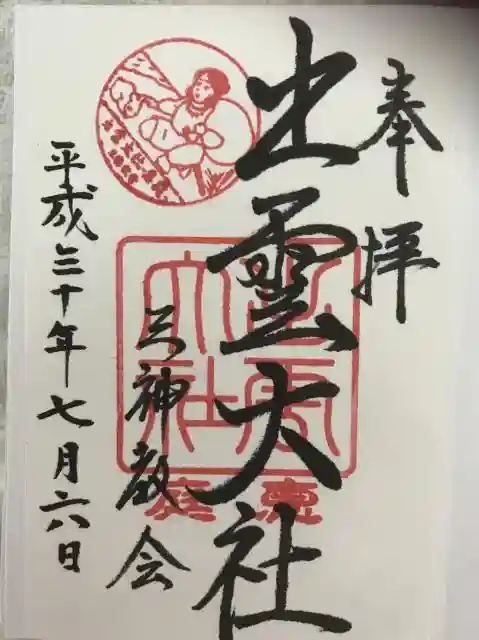 奉拝
出雲大社
三神教会
平成三十年七月六日
出雲
大社